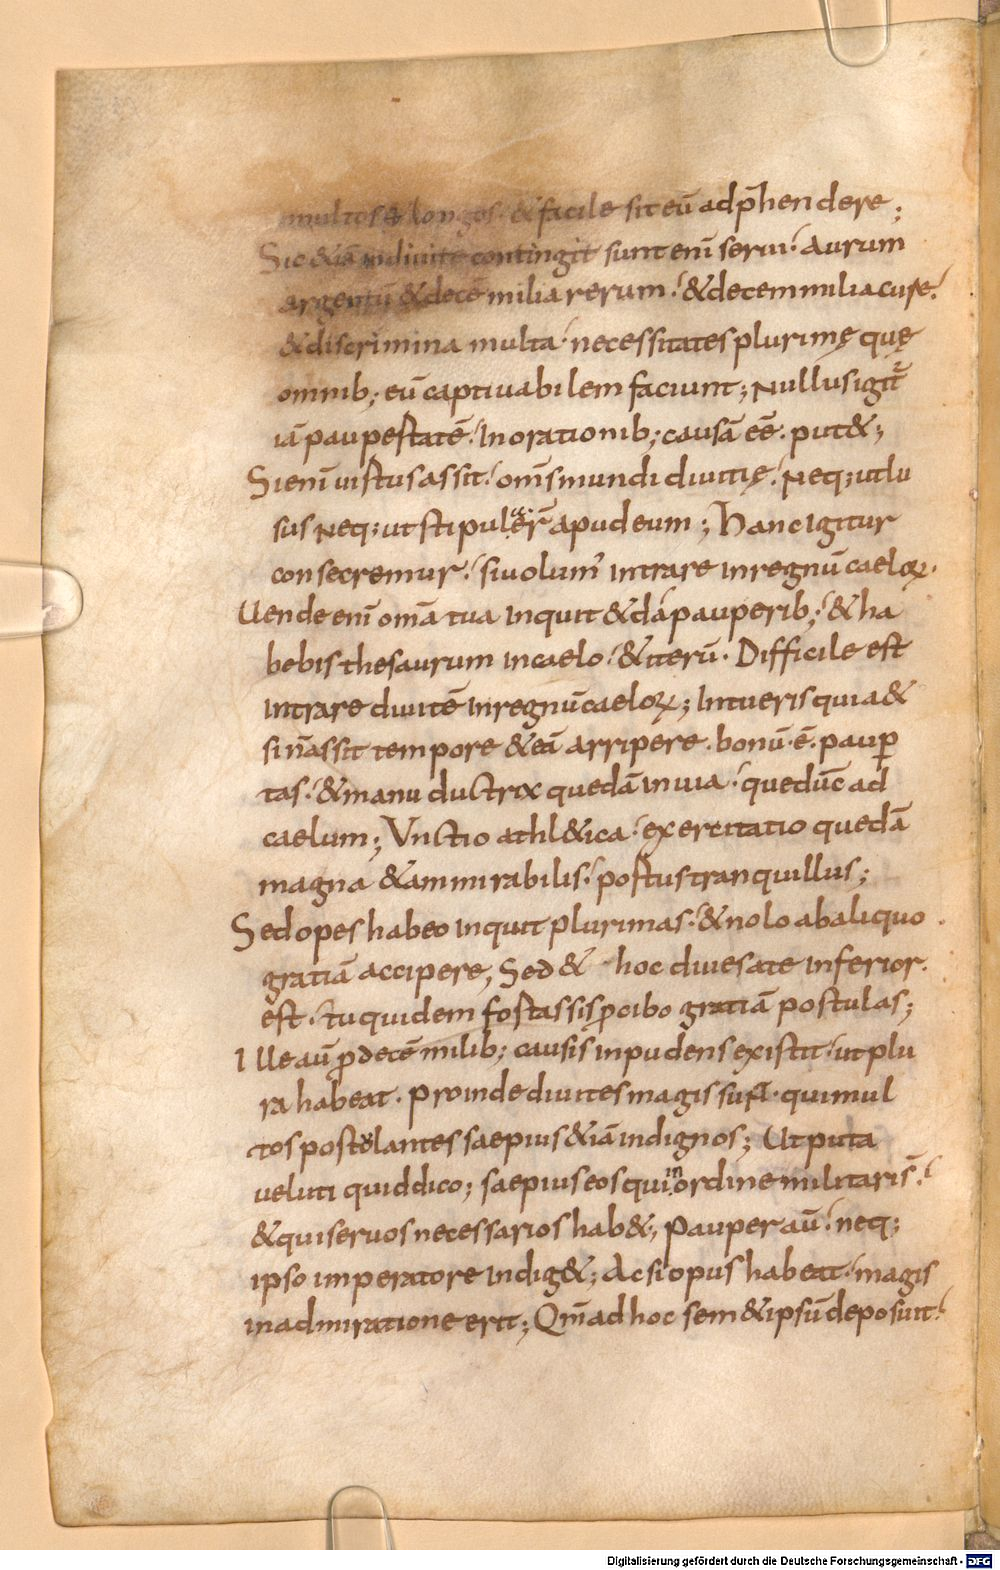 multos & longos. & facile sit eū adp̄hendere;
Sic &iā indiuite contingit sunt enī serui. Aurum
argentū & decē milia rerum. & decem milia cure.
& discrimina multa. necessitates plurimę quę
omnib; eū captiuabilem faciunt; Nullus igit̄
iā paupertatē. In orationib; causā eē. put&;
Si enī uirtus assit. om̄s mundi diuitię. Neq; ut lu
sus Neq; ut stipulaer̄ apud eum; Hanc Igitur
consecremur. si uolum' intrare in regnū caeloꝝ.
Uende enī om̄a tua inquit & da pauperib; & ha
bebis thesaurum in caelo. & iterū. Difficile est
intrare diuitē in regnū caeloꝝ; Intueris quia &
si n̄ assit tempore & eā arripere. bonū. ē. paup̱
tas. & manu ductrix quedā in uia. que dūc ad
caelum; Unctio athl&ica. exercitatio quedā
magna & ammirabilis. portus tranquillus;
Sed opes habeo inquit plurimas. & nolo ab aliquo
gratiā accipere; Sed & hoc diues a te inferior.
est. tu quidem fortassis ꝓ cibo gratiā postulas;
Ille aū ꝓ decē milib; causis inpudens existit. ut plu
ra habeat. Proinde diuites magis sunt. qui mul
tos postolantes saepius &iā indignos; Ut puta
ueluti quid dico; saepius eos qui in ordine militaris̄.
& qui seruos necessarios hab&; Pauper aū. neq;
ipso imperatore indig&; Ac si opus habeat. magis
in admiratione erit; Qm̄ ad hoc sem & ipsū deposuit.
Digitalisierung gefördert durch die Deutsche Forschungsgemeinschaft - DFG